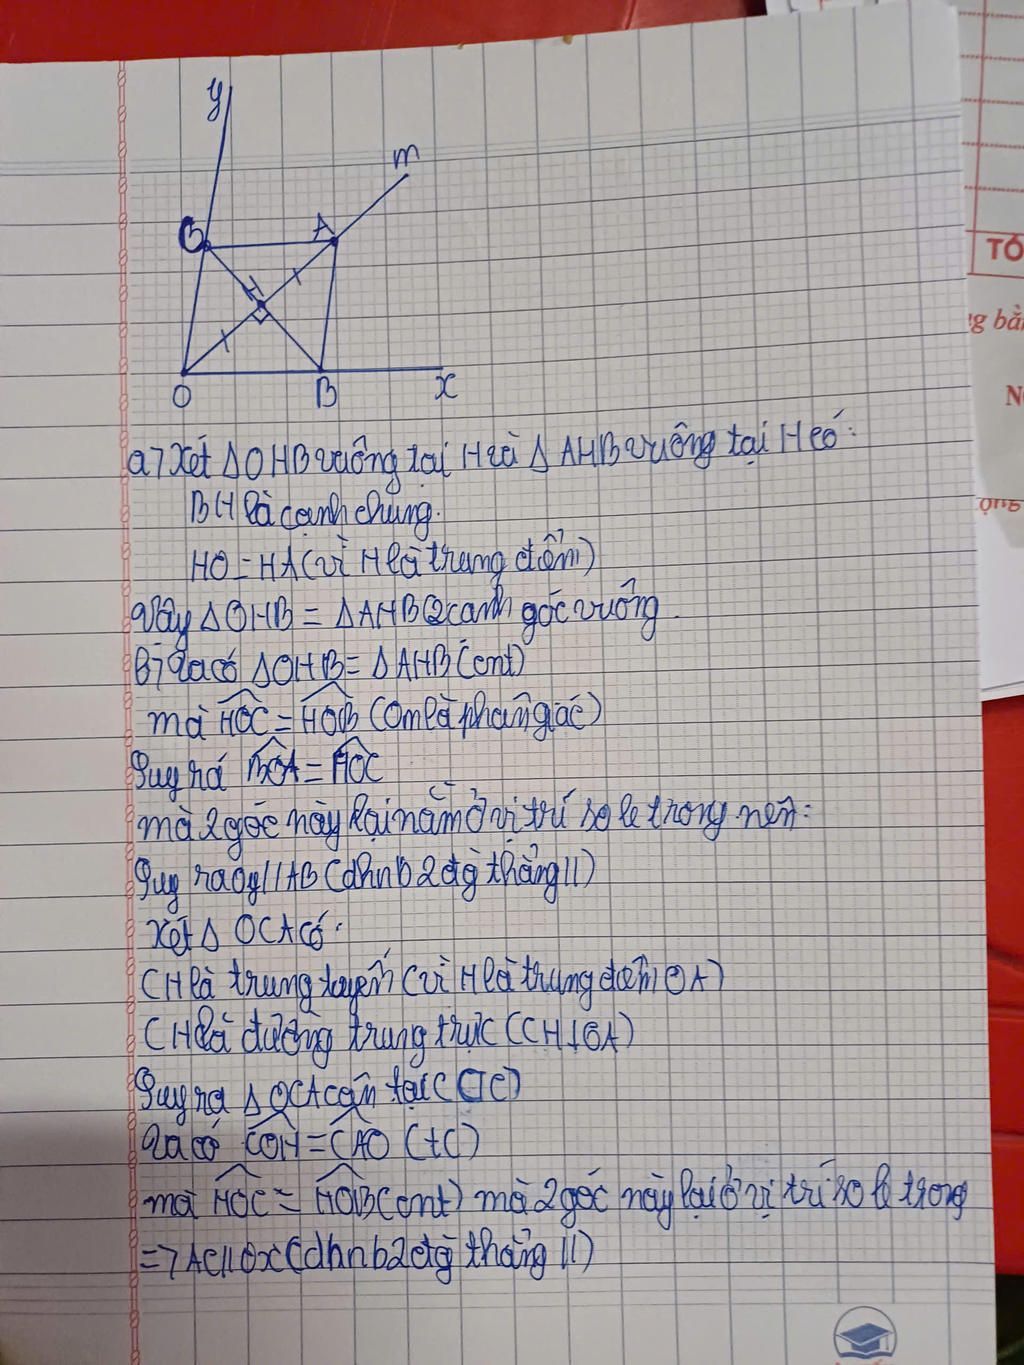 y
m
C
A
H
O
B
x
TỐ
ng bằ
N
ộng
a) Xét Δ OHB vuông tại H và Δ AHB vuông tại H có:
BH là cạnh chung.
HO = HA (vì H là trung điểm)
Vậy Δ OHB = Δ AHB (2 cạnh góc vuông
B) Ta có Δ OHB = Δ AHB (cmt)
mà HOC = HOB (Om là phân giác)
Suy ra BOA = AOC
mà 2 góc này lại nằm ở vị trí so le trong nên:
Suy ra Oy // AB (dhnb 2 đg thẳng //)
Xét Δ OCA có:
CH là trung tuyến (vì H là trung điểm OA)
CH là đường trung trực (CH ⊥ OA)
Suy ra Δ OCA cân tại C (TC)
Ta có COH = CAO (tC)
mà HOC = HOB (cmt) mà 2 góc này lại ở vị trí so le trong
=> AC // Ox (dhnb 2 đg thẳng //)